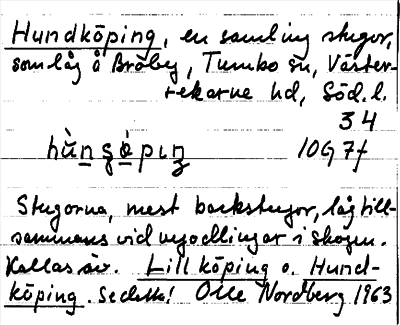 Hundköping, en samling stugor,
som låg å Bråby, Tumbo sn, Väster-
rekarne hd, Söd. l.
34
hùn̠ʂö̀pɩŋ 10G 7f
Stugorna, mest backstugor, låg till-
sammans vid nyodlingar i skogen.
Kallas äv. Lillköping o. Hund-
köping. Se detta! Olle Nordberg 1963